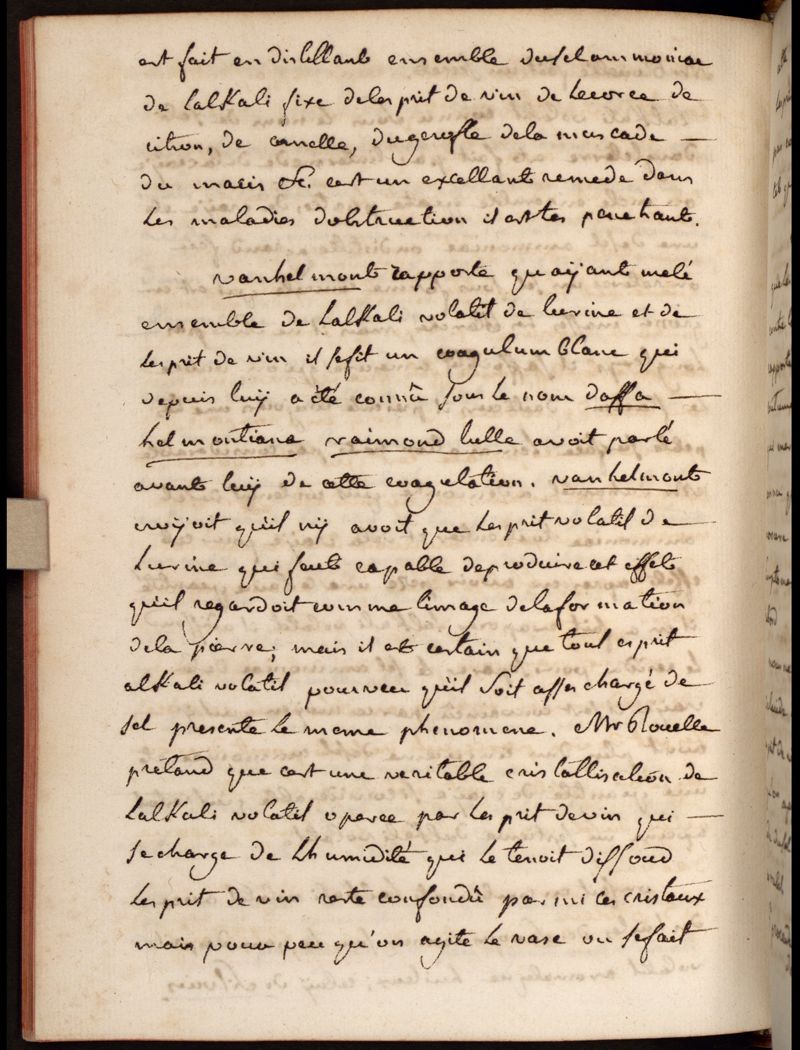 est fait en distillant ensemble du sel ammoniac
de lalkali fixe de lesprit de vin de lecorce de
citron, de canelle, du gerofle de la muscade —
du macis &c. cest un excellant remede dans
les maladies dobstruction il est tes penetrant.
vanhelmont rapporte quaÿant melé
ensemble de Lalkali volatil de lurine et de
lesprit de vin il se fit un coagulum blanc qui
depuis luÿ a été connû sous le nom doffa —
helmontiana raimond lulle avoit parlé
avant luÿ de cette coagulation. vanhelmont
croÿoit quil nÿ avoit que lesprit volatil de
Lurine qui faut capable deproduire cet effet
quil regardoit comme limage de la formation
de la pierre; mais il est certain que tout esprit
alkali volatil pourveu quil soit asses chargé de
sel presente le meme phenomene. Mr Rouelle
pretand que cest une veritable cristallisation de
Lalkali volatil operee par lesprit de vin qui —
se charge de Lhumidité qui le tenoit dissoud
lesprit de vin reste confondû parmi ces cristaux
mais pour peu qu'on agite le vase ou se fait